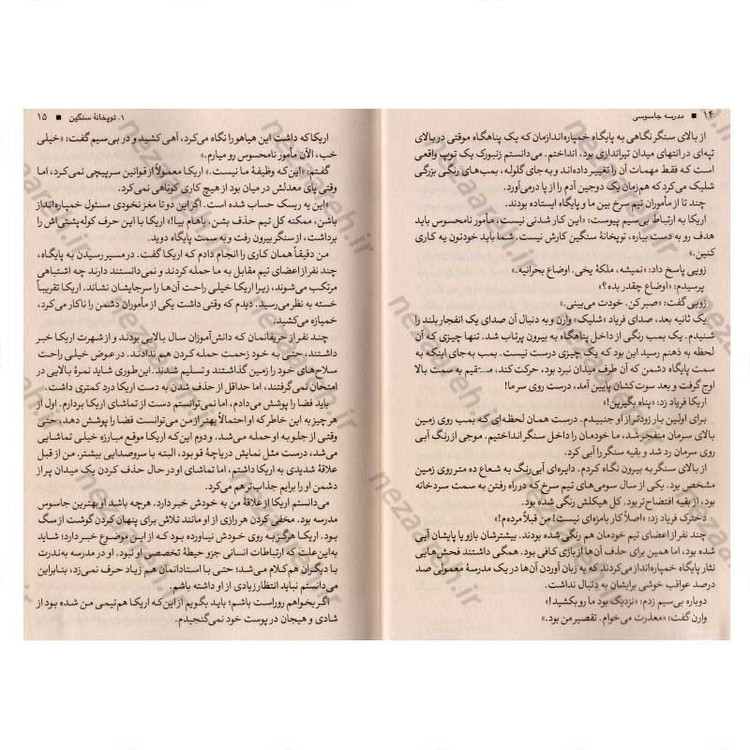 ۱۴ ■ مدرسه جاسوسی
از بالای سنگر نگاهی به پایگاه خمپاره‌اندازمان که یک پناهگاه موقتی در بالای
تپه‌ای در انتهای میدان تیراندازی بود، انداختم. می‌دانستم زنبورک یک توپ واقعی
است که فقط مهمات آن را تغییر داده‌اند و به جای گلوله، بمب‌های رنگی بزرگی
شلیک می‌کرد که هم‌زمان یک دوجین آدم را از پا درمی‌آورد.
چند تا از مأموران تیم سرخ بین ما و پایگاه ایستاده بودند.
اریکا به ارتباط بی‌سیم پیوست: «این کار شدنی نیست. مأمور نامحسوس باید
هدف رو به دست بیاره، توپخانهٔ سنگین کارش نیست. شما باید خودتون یه کاری
کنین.»
زویی پاسخ داد: «نمیشه، ملکهٔ یخی. اوضاع بحرانیه.»
پرسیدم: «اوضاع چقدر بده؟»
زویی گفت: «صبر کن. خودت می‌بینی.»
یک ثانیه بعد، صدای فریاد «شلیک» وارن و به دنبال آن صدای یک انفجار بلند را
شنیدم. یک بمب رنگی از داخل پناهگاه به بیرون پرتاب شد. تنها چیزی که آن
لحظه به ذهنم رسید این بود که یک چیزی درست نیست. بمب به جای اینکه به
سمت پایگاه دشمن که آن طرف میدان نبرد بود، حرکت کند، مستقیم به سمت بالا
اوج گرفت و بعد سوت‌کشان پایین آمد، درست روی سر ما!
اریکا فریاد زد: «پناه بگیرین!»
برای اولین بار زودتر از او جنبیدم. درست همان لحظه‌ای که بمب روی زمین
بالای سرمان منفجر شد، ما خودمان را داخل سنگر انداختیم. موجی از رنگ آبی
روی سرمان رد شد و بقیه سنگر را آبی کرد.
از بالای سنگر به بیرون نگاه کردم. دایره‌ای آبی‌رنگ به شعاع ده متر روی زمین
مشخص بود. یکی از سال سومی‌های تیم سرخ که در راه رفتن به سمت سردخانه
بود، از بقیه افتضاح‌تر بود. کل هیکلش رنگی شده بود.
دخترک فریاد زد: «اصلاً کار بامزه‌ای نیست! من قبلاً مردم!»
چند نفر از اعضای تیم خودمان هم رنگی شده بودند. بیشترشان بازو یا پایشان آبی
شده بود، اما همین برای حذف آن‌ها از بازی کافی بود. همگی داشتند فحش‌هایی
نثار پایگاه خمپاره‌انداز می‌کردند که به زبان آوردن آن‌ها در یک مدرسهٔ معمولی صد
درصد عواقب خوشی برایشان به دنبال نداشت.
دوباره بی‌سیم زدم: «نزدیک بود ما رو بکشید!»
وارن گفت: «معذرت می‌خوام. تقصیر من بود.»
۱. توپخانهٔ سنگین ■ ۱۵
اریکا که داشت این هیاهو را نگاه می‌کرد، آهی کشید و در بی‌سیم گفت: «خیلی
خب، الآن مأمور نامحسوس رو میارم.»
گفتم: «این که وظیفهٔ ما نیست.» اریکا معمولاً از قوانین سرپیچی نمی‌کرد، اما
وقتی پای معدلش در میان بود از هیچ کاری کوتاهی نمی‌کرد.
«این یه ریسک حساب شده است. اگر این دو تا مغز نخودی مسئول خمپاره‌انداز
باشن، ممکنه کل تیم حذف بشن. باهام بیا!» اریکا با این حرف کوله‌پشتی‌اش را
برداشت، از سنگر بیرون رفت و به سمت پایگاه دوید.
من دقیقاً همان کاری را انجام دادم که اریکا گفت. در مسیر رسیدن به پایگاه،
چند نفر از اعضای تیم مقابل به ما حمله کردند و نمی‌دانستند دارند چه اشتباهی
مرتکب می‌شوند، زیرا اریکا خیلی راحت آن‌ها را سر جایشان نشاند. اریکا تقریباً
خسته به نظر می‌رسید. دیدم که وقتی داشت یکی از مأموران دشمن را ناکار می‌کرد،
خمیازه می‌کشید.
چند نفر از حریفانمان که دانش‌آموزان سال بالایی بودند و از شهرت اریکا خبر
داشتند، حتی به خود زحمت حمله کردن هم ندادند. در عوض خیلی راحت
سلاح‌های خود را زمین گذاشتند و تسلیم شدند. این‌طوری شاید نمرهٔ بالایی در
امتحان نمی‌گرفتند، اما حداقل از حذف شدن به دست اریکا درد کمتری داشت.
باید فضا را پوشش می‌دادم، اما نمی‌توانستم دست از تماشای اریکا بردارم. اول از
هر چیز به این خاطر که او احتمالاً بهتر از من می‌توانست فضا را پوشش دهد، حتی
وقتی از جلو به او حمله می‌شد. و دوم این‌که اریکا موقع مبارزه خیلی تماشایی
می‌شد، درست مثل نمایش دریاچهٔ قو بود، البته با سروصدایی بیشتر. من از قبل
علاقهٔ شدیدی به اریکا داشتم، اما تماشای او در حال حذف کردن یک میدان پر از
دشمن او را برایم جذاب‌تر هم می‌کرد.
می‌دانستم اریکا از علاقهٔ من به خودش خبر دارد. هرچه باشد او بهترین جاسوس
مدرسه بود. مخفی کردن هر رازی از او مانند تلاش برای پنهان کردن گوشت از سگ
بود. اریکا هرگز به روی خودش نیاورده بود که از این موضوع خبر دارد؛ شاید
به این علت که ارتباطات انسانی جزو حیطهٔ تخصصی او نبود. او در مدرسه به‌ندرت
با دیگران هم‌کلام می‌شد؛ حتی با استادانمان هم زیاد حرف نمی‌زد، بنابراین
می‌دانستم نباید انتظار زیادی از او داشته باشم.
اگر بخواهم روراست باشم؛ باید بگویم از این‌که اریکا هم‌تیمی من شده بود از
شادی و هیجان در پوست خود نمی‌گنجیدم.
nezaareh.ir